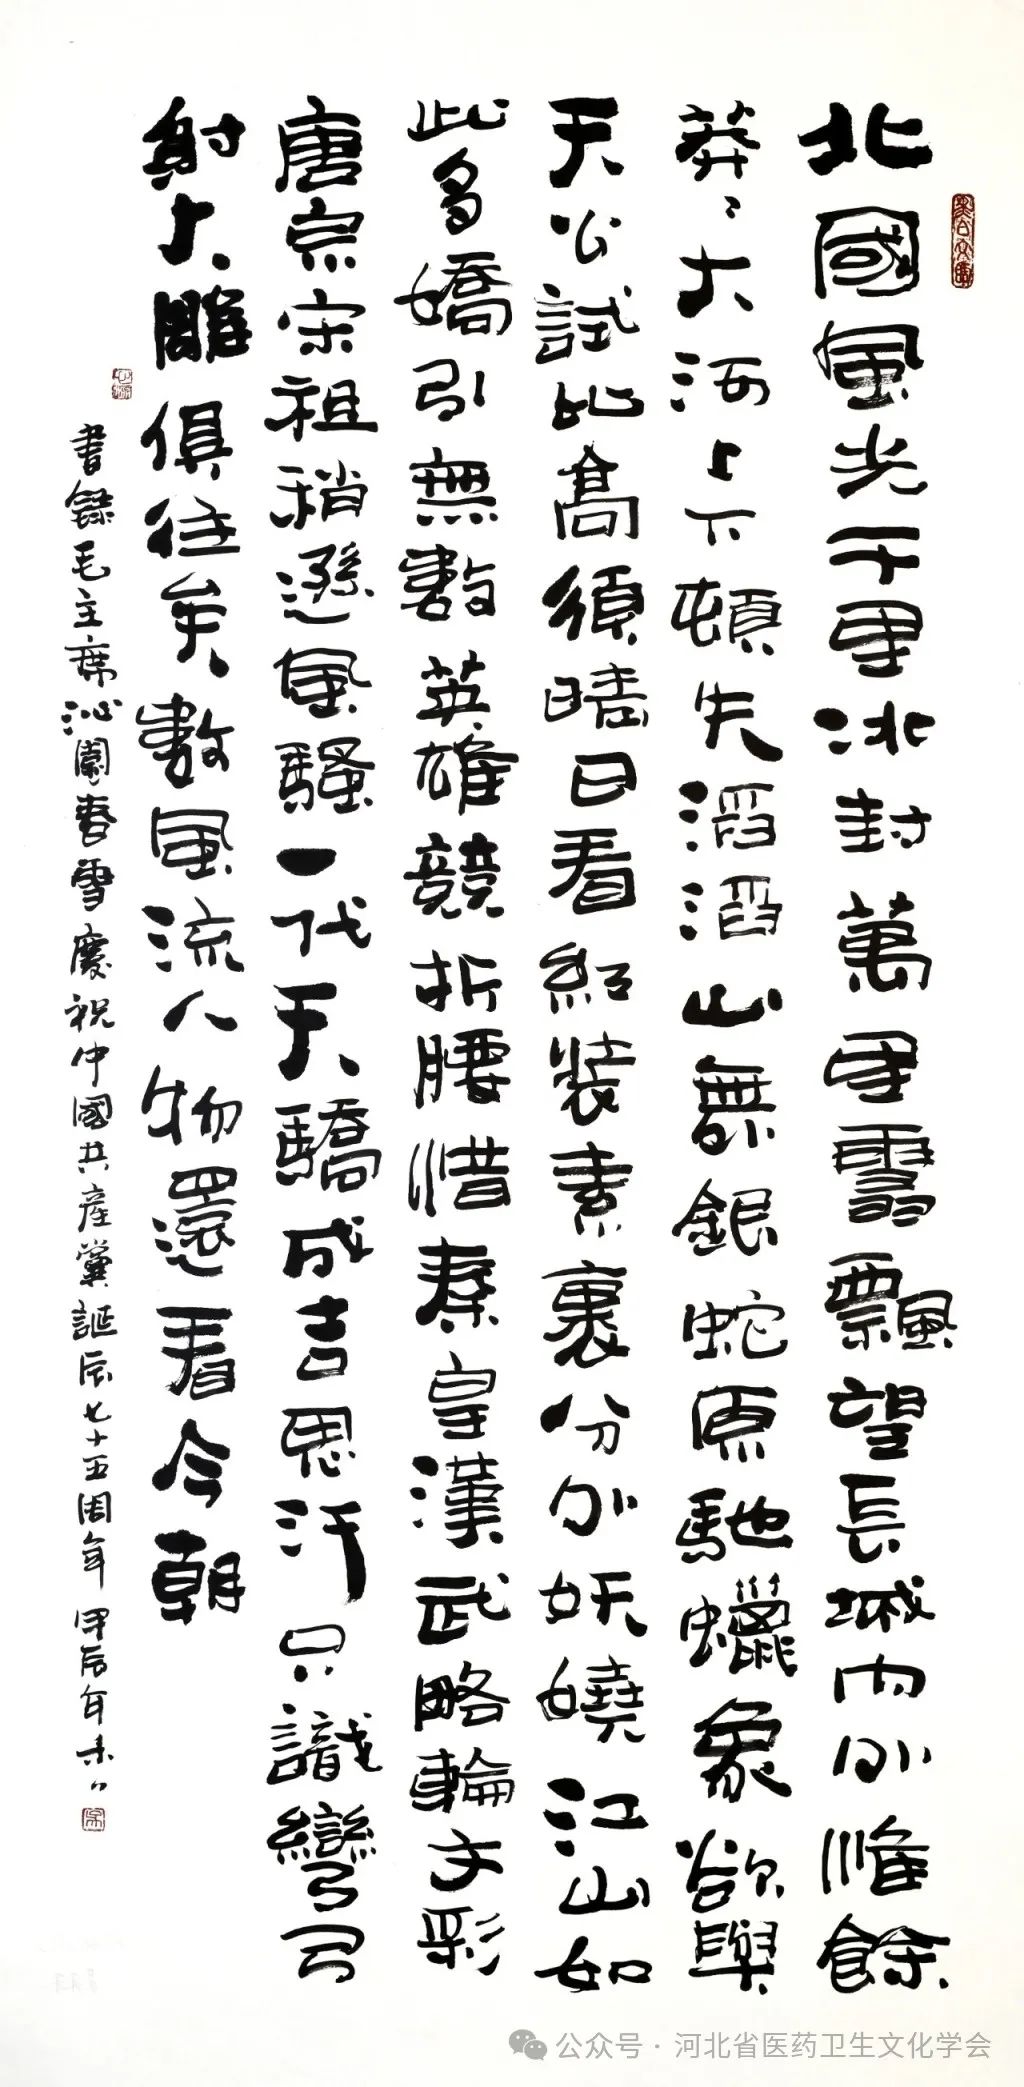 北國風光千里冰封萬里雪飄望長城內外惟餘
莽〻大河上下頓失滔滔山舞銀蛇原馳蠟象欲與
天公試比高須晴日看紅裝素裹分外妖嬈江山如
此多嬌引無數英雄競折腰惜秦皇漢武略輸文彩
唐宗宋祖稍遜風騷一代天驕成吉思汗只識彎弓
射大雕俱往矣數風流人物還看今朝
書錄毛主席沁園春雪慶祝中國共產黨誕辰七十五周年 甲辰年
公众号 · 河北省医药卫生文化学会